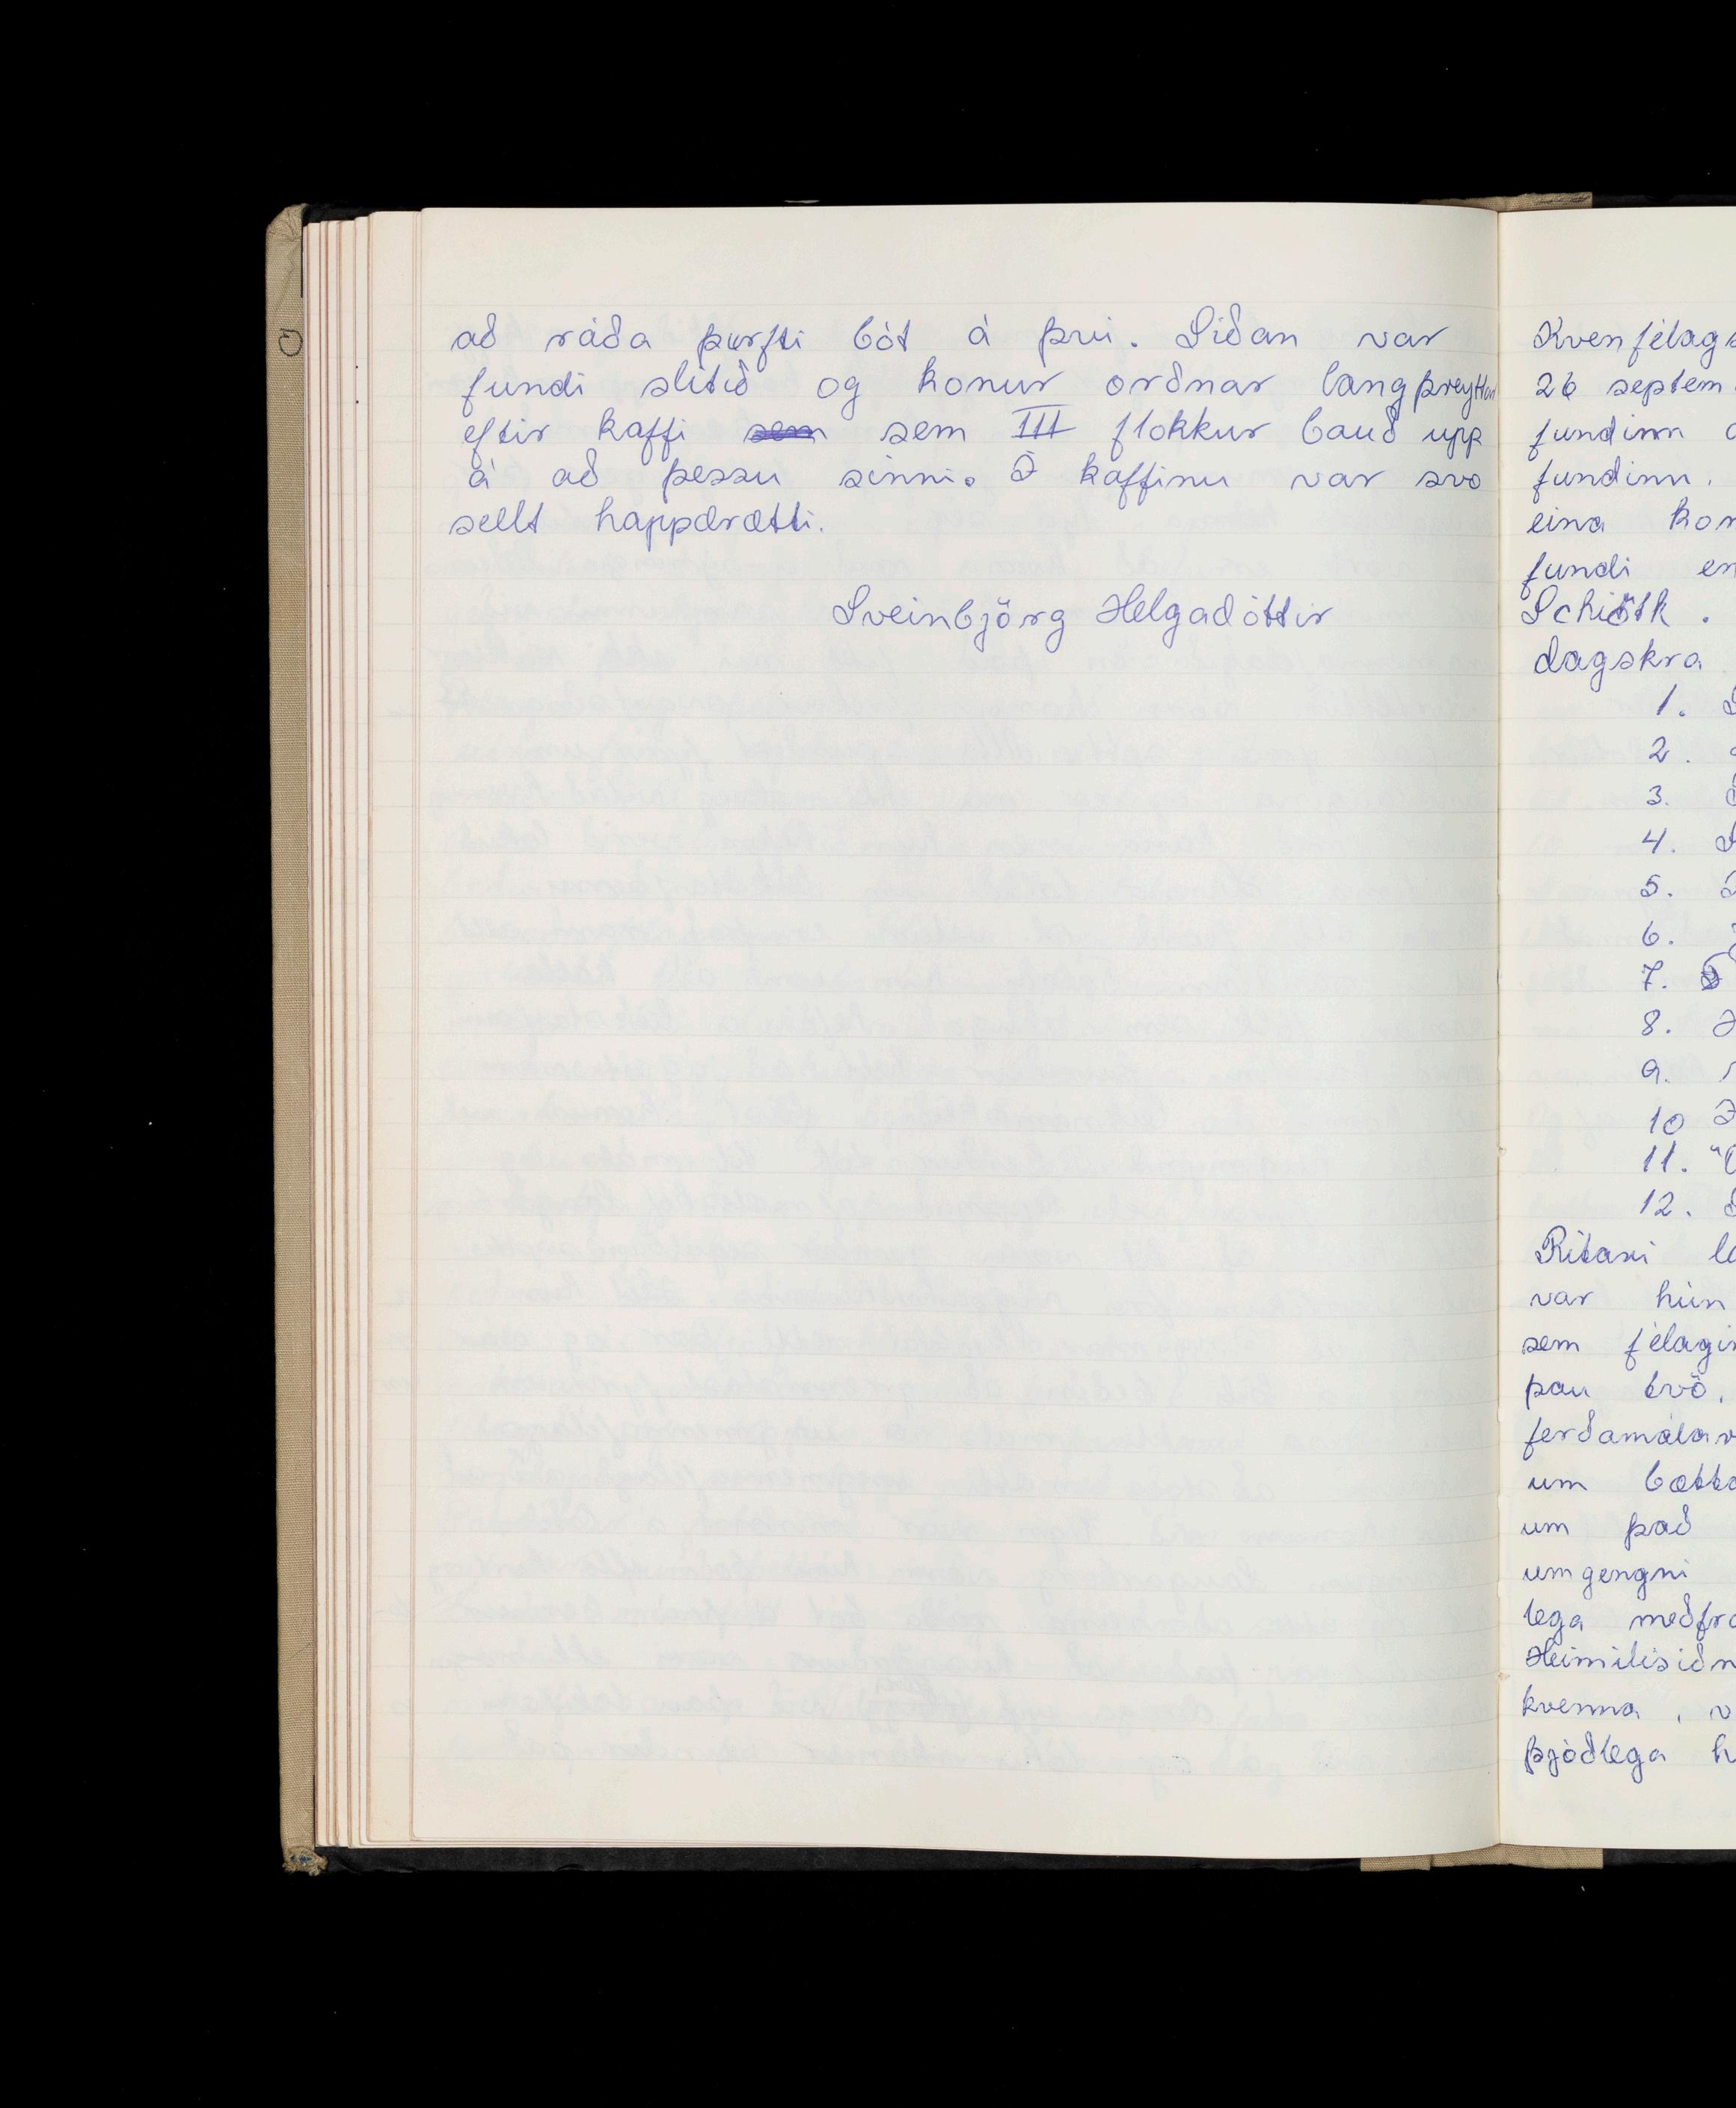 að ráða þurfti bót á því. Síðan var
fundi slitið og konur orðnar langþreyttar
eftir kaffi sem sem III flokkur bauð upp
á að þessu sinni. Í kaffinu var svo
sellt happdrætti.
Sveinbjörg Helgadóttir
Kvenfélags
26 septem
fundinn
fundinn.
eina kon
fundi en
Schiöth.
dagskra
1.
2.
3.
4.
5.
6.
7.
8.
9.
10
11.
12.
Ritari
var hún
sem félagi
þau tvö.
ferðamálar
um bætta
um það
umgengni
lega meðfra
Heimilisiðn
kvenna, v
þjóðlega h